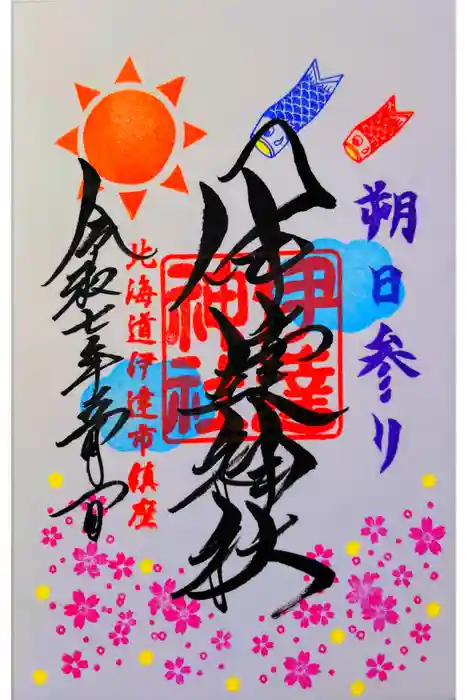 朔日参り
伊達神社
伊達神社
北海道伊達市鎮座
令和七年